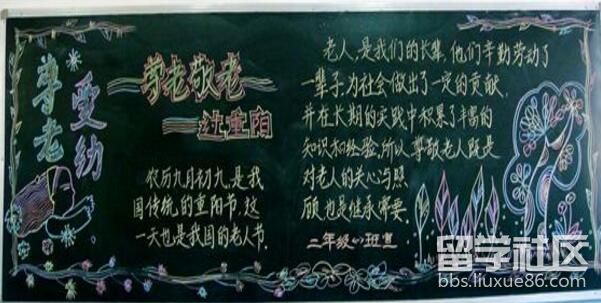 尊老
爱幼
尊老敬老
——过重阳
农历九月初九,是我
国传统的重阳节,这
一天也是我国的老人节.
老人,是我们的长辈,他们辛勤劳动了
一辈子,为社会做出了一定的贡献,
并在长期的实践中积累了丰富的
知识和经验,所以,尊敬老人既是
对老人的关心与照
顾,也是继承需要
二年级(1)班宣
留学社区
bbs.liuxue86.com